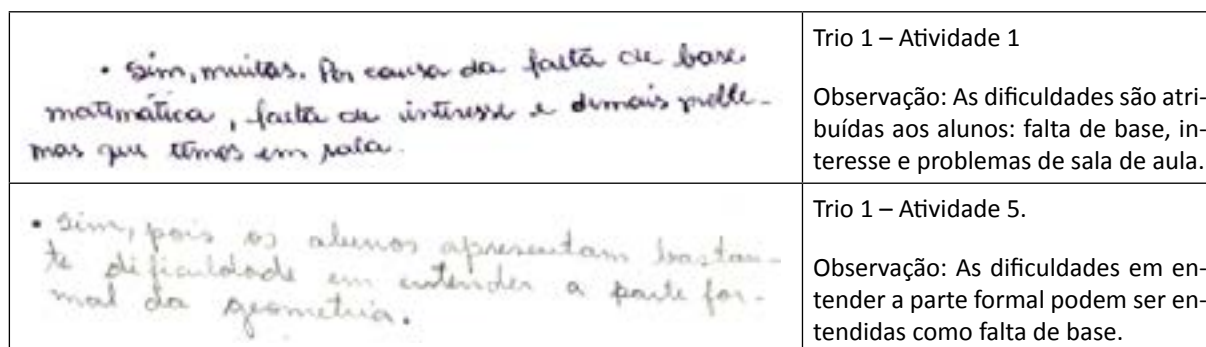 • Sim, muitas. Por causa da falta de base
matemática, falta de interesse e demais proble-
mas que temos em sala.
Trio 1 – Atividade 1
Observação: As dificuldades são atri-
buídas aos alunos: falta de base, in-
teresse e problemas de sala de aula.
• Sim, pois os alunos apresentam bastan-
te dificuldade em entender a parte for-
mal da geometria.
Trio 1 – Atividade 5.
Observação: As dificuldades em en-
tender a parte formal podem ser en-
tendidas como falta de base.